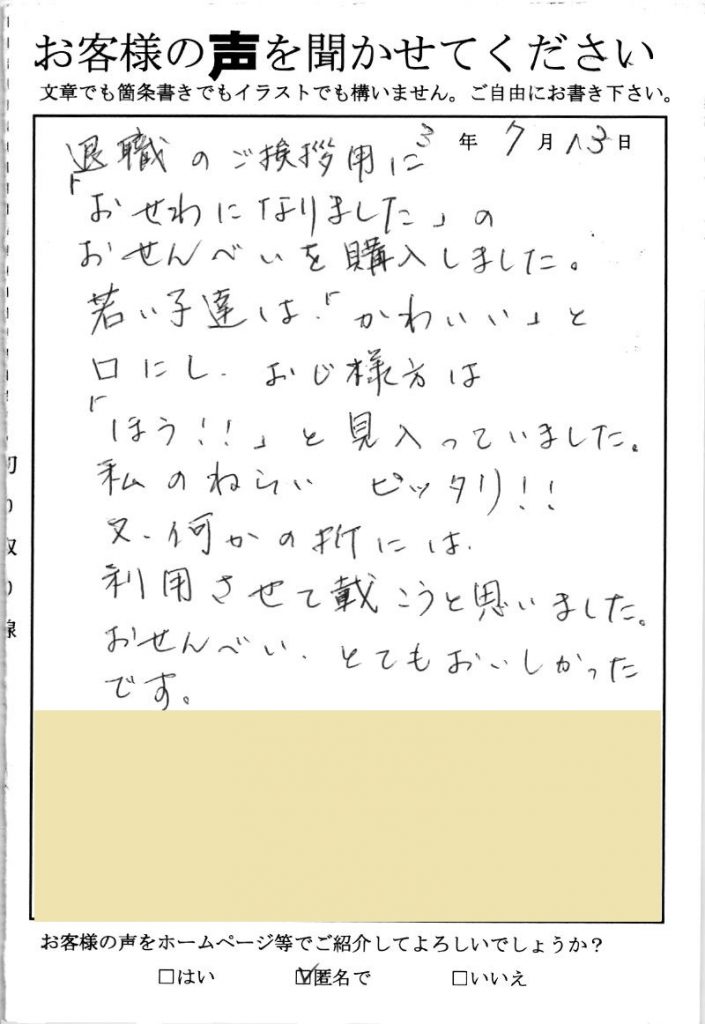 お客様の声を聞かせてください
文章でも箇条書きでもイラストでも構いません。ご自由にお書き下さい。
3年7月13日
退職のご挨拶用に
「おせわになりました」の
おせんべいを購入しました。
若い子達は、「かわいい」と
口にし、おじ様方は
「ほう!!」と見入っていました。
私のねらい ピッタリ!!
又、何かの折には、
利用させて戴こうと思いました。
おせんべい、とてもおいしかった
です。
切り取り線
お客様の声をホームページ等でご紹介してよろしいでしょうか?
□はい ☑匿名で □いいえ